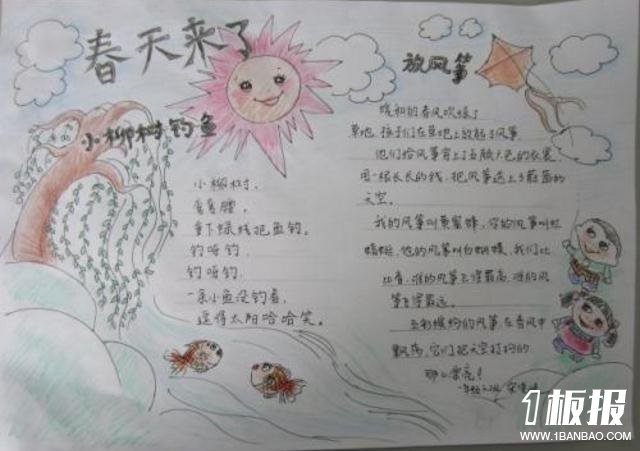 春天来了
小柳树钓鱼
小柳树，
弯弯腰，
垂下绿线把鱼钓。
钓呀钓，
钓呀钓，
一条小鱼没钓着，
逗得太阳哈哈笑。
放风筝
暖和的春风吹绿了
草地，孩子们在草地上放起了风筝。
他们给风筝穿上了五颜六色的衣裳，
用一根长长的线，把风筝送上了蓝蓝的
天空。
我的风筝叫黄蜜蜂，你的风筝叫红
蜻蜓，他的风筝叫白蝴蝶，我们比
比看，谁的风筝飞得最高，谁的风
筝飞得最远。
五彩缤纷的风筝，在春风中
飘荡，它们把天空打扮的
那么漂亮！
1板报
WWW.1BANBAO.COM